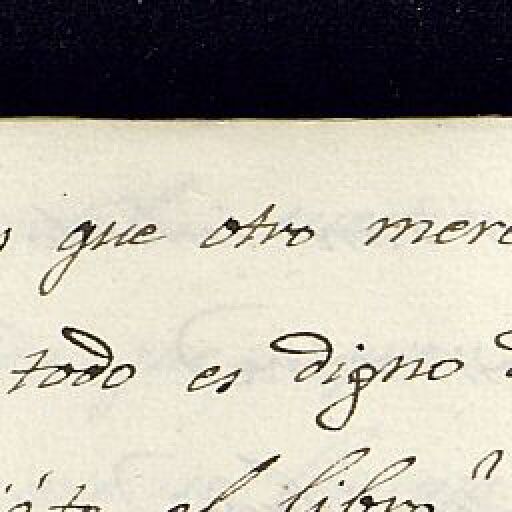 que otro
todo es digno
el libro